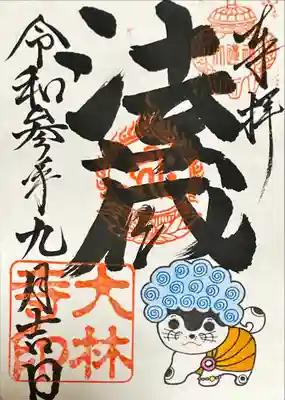 奉拝
法蔵
令和参年九月吉日
大林
寺印